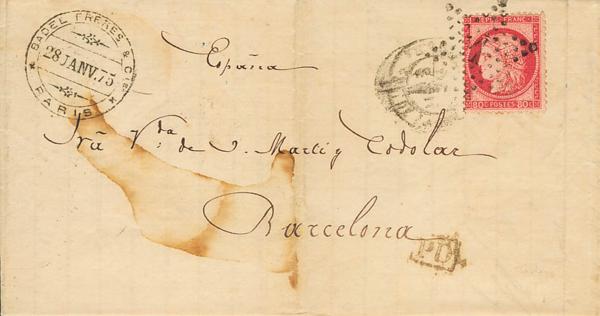 BADEL FRÈRES & CIE
28 JANV. 75
PARIS
España
REPUB. FRANC.
80 C. POSTES 80 C.
Sra Vda de J. Marti y Codolar
Barcelona
P.D.